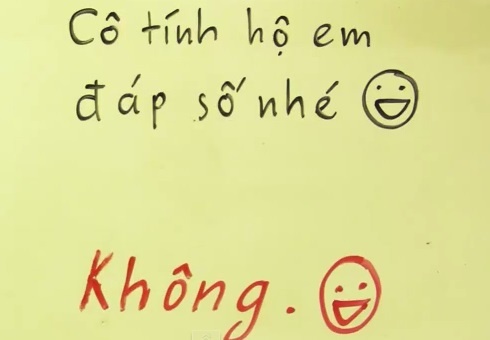 Cô tính hộ em
đáp số nhé
Không.